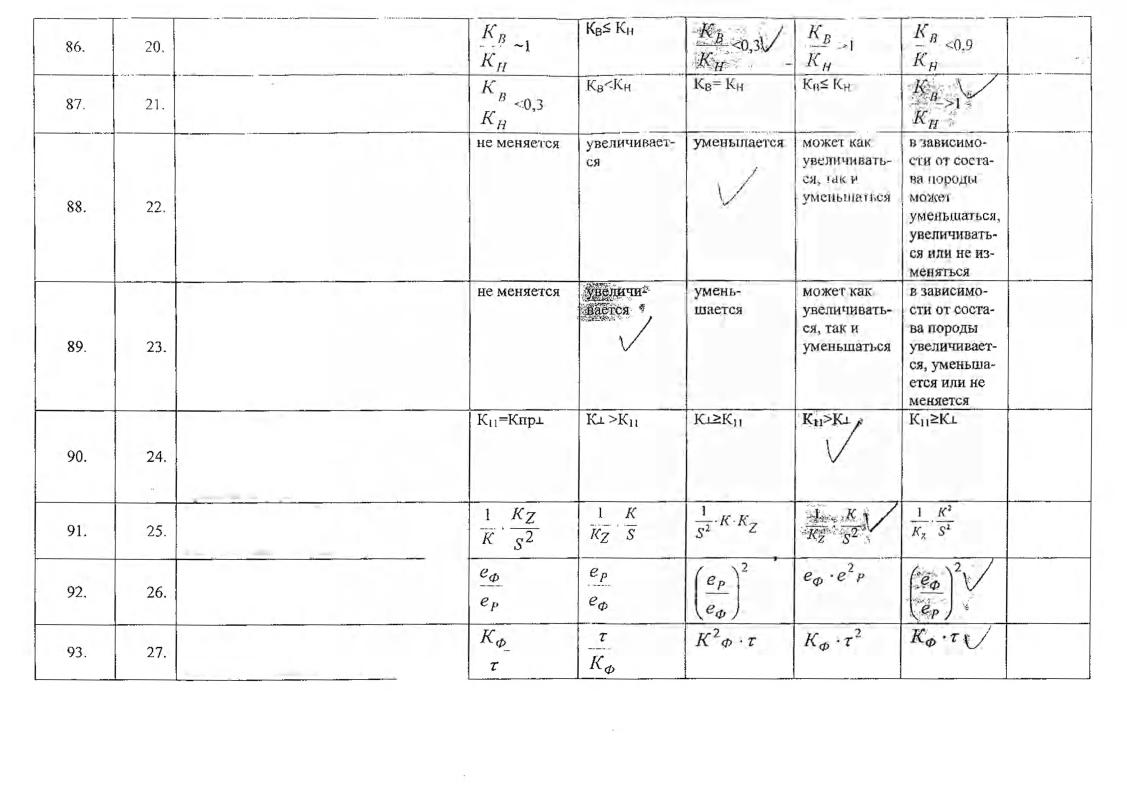 86. 20. K_B/K_H ~1 K_B≤ K_H K_B/K_H <0,3 K_B/K_H >1 K_B/K_H <0,9
87. 21. K_B/K_H <0,3 K_B<K_H K_B= K_H K_B≤ K_H K_B/K_H >1
88. 22.
не меняется
увеличивает-
ся
уменьшается
может как
увеличивать-
ся, так и
уменьшаться
в зависимо-
сти от соста-
ва породы
может
уменьшаться,
увеличивать-
ся или не из-
меняться
89. 23.
не меняется
увеличи-
вается
умень-
шается
может как
увеличивать-
ся, так и
уменьшаться
в зависимо-
сти от соста-
ва породы
увеличивает-
ся, уменьша-
ется или не
меняется
90. 24. K₁₁=Kпр⊥ K⊥ >K₁₁ K⊥≥K₁₁ K₁₁>K⊥ K₁₁≥K⊥
91. 25. 1/K · K_Z/S² 1/K_Z · K/S 1/S² · K · K_Z 1/K_Z · K/S² 1/K_Z · K²/S²
92. 26. e_Ф/e_P e_P/e_Ф (e_P/e_Ф)² e_Ф · e²_P (e_Ф/e_P)²
93. 27. K_Ф/τ τ/K_Ф K²_Ф · τ K_Ф · τ² K_Ф · τ